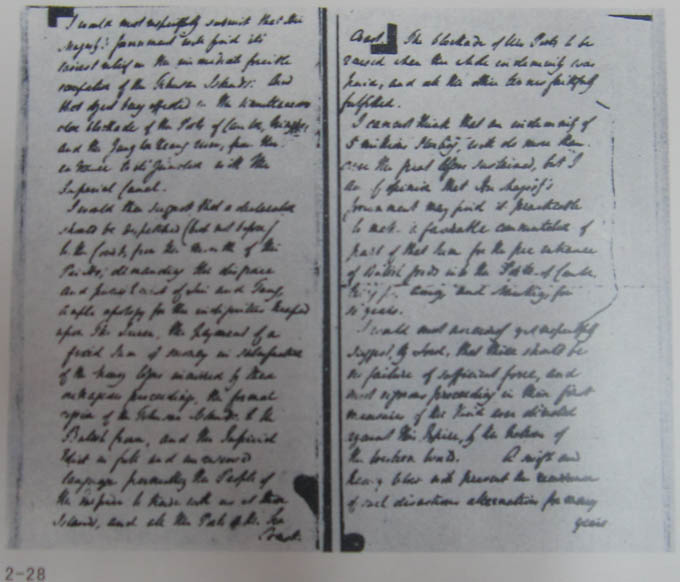 I would most respectfully submit that Her
Majesty's Government will find its
easiest relief in the immediate forcible
occupation of the Chusan Islands: And
that step being effected in the simultaneous
close blockade of the Ports of Canton, Ningpo,
and the Yang tse Keang river, from the
entrance to its junction with the
Imperial Canal.
I would then suggest that a declaration
should be dispatched (but not before)
to the Court, from the Mouth of the
Peiho; demanding the disgrace
and punishment of Lin and Tang,
ample apology for the indignities heaped
upon The Queen, the payment of a
fixed Sum of money in satisfaction
of the heavy losses incurred by these
outrageous proceeding, the formal
cession of the Chusan Islands to the
British Crown, and the Imperial
Edict in full and
language permitting the People of
the empire to trade with us at those
Islands, and all the Ports of the Sea
Coast.
Coast. The blockade of the Ports to be
raised when the whole indemnity was
paid, and all the other terms faithfully
fulfilled.
I cannot think that an indemnity of
5 millions Sterling, will do more than
cover the great losses sustained, but I
am of opinion that Her Majesty's
Government may find it practicable
to make a favorable commutation of
part of that Sum for the free entrance
of British goods into the Ports of Canton,
Ningpo, Amoy and Nanking for
years.
I would most anxiously yet respectfully
suggest, My Lord, that there should be
no failure of sufficient force, and
most vigorous proceeding in this first
measure of the kind ever directed
against this Empire, by the Nations of
the Western World. A swift and
heavy blow will prevent the recurrence
of such disastrous alternation for many
years
2-28